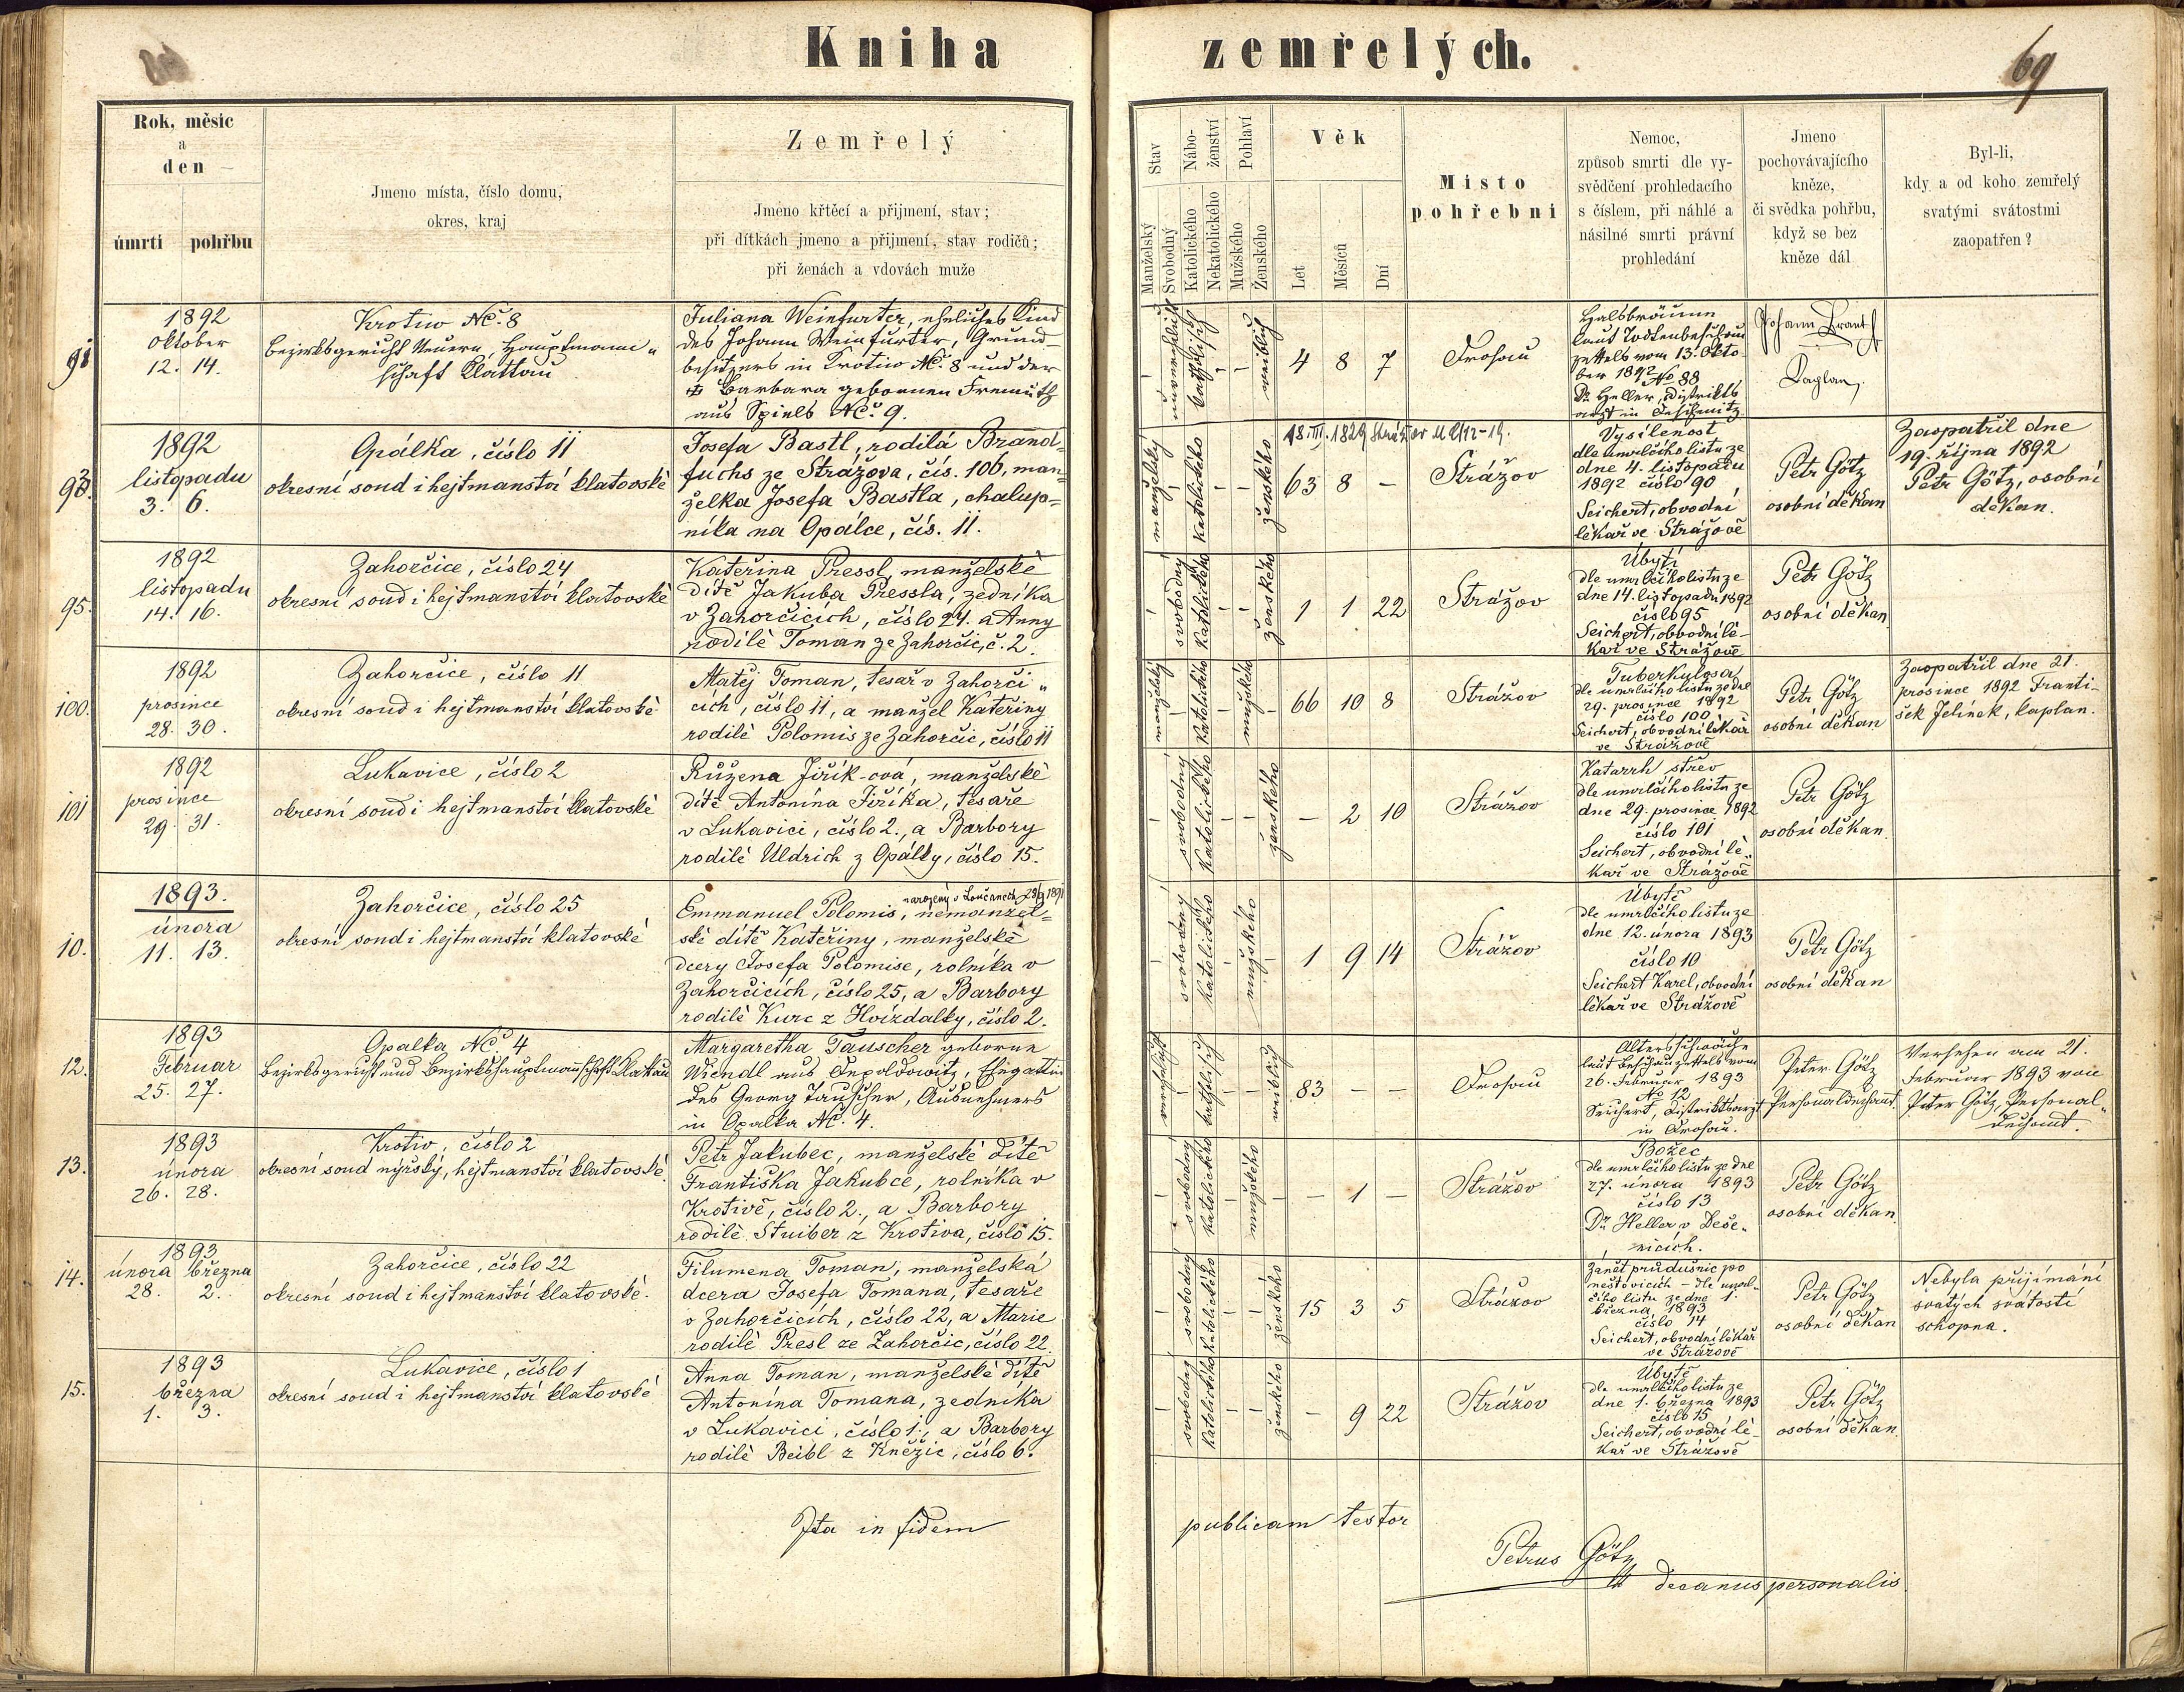 Kniha zemřelých.
69
Rok, měsíc
a
den
úmrtí pohřbu
Jmeno místa, číslo domu,
okres, kraj
Zemřelý
Jmeno křtěcí a přijmení, stav;
při dítkách jmeno a přijmení, stav rodičů;
při ženách a vdovách muže
Stav
Manželský
Svobodný
Nábo-
ženství
Katolického
Nekatolického
Pohlaví
Mužského
Ženského
Věk
Let
Měsíců
Dní
Místo
pohřební
Nemoc,
způsob smrti dle vy-
svědčení prohledacího
s číslem, při náhlé a
násilné smrti právní
prohledání
Jmeno
pochovávajícího
kněze,
či svědka pohřbu,
když se bez
kněze dál
Byl-li,
kdy a od koho zemřelý
svatými svátostmi
zaopatřen?
91
1892
Oktober
12. 14.
Krotiw NC. 8
Bezirksgericht Neuern, Hauptmann-
schaft Klattau
Juliana Weinfurter, eheliches Kind
des Johann Weinfurter, Grund-
besitzers in Krotiw NC. 8 und der
Barbara gebornen Fremuth
aus Spiels NC. 9.
katholisch
weiblich
4 8 7
Drosau
Halsbräune
laut Todtenbeschau
zettels vom 13. Okto-
ber 1892 No 88
Dr. Heller, Distrikts
arzt in Deschenitz
Johann Brant
Kaplan.
93.
1892
listopadu
3. 6.
Opálka, číslo 11
okresní soud i hejtmanství klatovské
Josefa Bastl, rodilá Brand-
fuchs ze Strážova, čís. 106, man-
želka Josefa Bastla, chalup-
níka na Opálce, čís. 11.
manželský
katolického
ženského
18. III. 1829
63 8 –
Strážov
Vysílenost
dle úmrlčího listu ze
dne 4. listopadu
1892 číslo 90
Seichert, obvodní
lékař ve Strážově
Petr Götz
osobní děkan
Zaopatřil dne
19. října 1892
Petr Götz, osobní
děkan.
95.
1892
listopadu
14. 16.
Zahorčice, číslo 24
okresní soud i hejtmanství klatovské
Kateřina Pressl, manželské
dítě Jakuba Pressla, zedníka
v Zahorčicích, číslo 24. a Anny
rodilé Toman ze Zahorčic, č. 2.
svobodný
katolického
ženského
1 1 22
Strážov
Úbytí
dle umrlčího listu ze
dne 14. listopadu 1892
číslo 95
Seichert, obvodní lé-
kař ve Strážově
Petr Götz
osobní děkan
100.
1892
prosince
28. 30.
Zahorčice, číslo 11
okresní soud i hejtmanství klatovské
Matěj Toman, tesař v Zahorči-
cích, číslo 11, a manžel Kateřiny
rodilé Polomis ze Zahorčic, číslo 11
manželský
katolického
mužského
66 10 8
Strážov
Tuberkulosa
dle umrlčího listu ze dne
29. prosince 1892
číslo 100
Seichert, obvodní lékař
ve Strážově
Petr Götz
osobní děkan
Zaopatřil dne 21.
prosince 1892 Franti-
šek Jelínek, kaplan.
101
1892
prosince
29. 31.
Lukavice, číslo 2
okresní soud i hejtmanství klatovské
Růžena Jiřík-ová, manželské
dítě Antonína Jiříka, tesaře
v Lukavici, číslo 2., a Barbory
rodilé Uldrich z Opálky, číslo 15.
svobodný
katolického
ženského
– 2 10
Strážov
Katarrh střev
dle umrlčího listu ze
dne 29. prosince 1892
číslo 101
Seichert, obvodní lé-
kař ve Strážově
Petr Götz
osobní děkan
10.
1893.
února
11. 13.
Zahorčice, číslo 25
okresní soud i hejtmanství klatovské
narozený v Loučanech 28/4 1891
Emmanuel Polomis, nemanžel-
ské dítě Kateřiny, manželské
dcery Josefa Polomise, rolníka v
Zahorčicích, číslo 25, a Barbory
rodilé Kurc z Hvízdalky, číslo 2.
svobodný
katolického
mužského
1 9 14
Strážov
Úbytě
dle umrlčího listu ze
dne 12. února 1893
číslo 10
Seichert Karel, obvodní
lékař ve Strážově
Petr Götz
osobní děkan
12.
1893
Februar
25. 27.
Opalka NC 4
Bezirksgericht und Bezirkshauptmannschaft Klattau
Margaretha Tauscher geborene
Wiendl aus Depoldowitz, Ehegattin
des Georg Tauscher, Ausnehmers
in Opalka NC. 4.
verehelicht
katholisch
weiblich
83 – –
Drosau
Altersschwäche
laut Beschauzettels vom
26. Februar 1893
No 12
Seichert, Distriktsarzt
in Drosau.
Peter Götz
Personaldechant.
Versehen am 21.
Februar 1893 von
Peter Götz, Personal-
dechant.
13.
1893
února
26. 28.
Krotiv, číslo 2
okresní soud nýrský, hejtmanství klatovské.
Petr Jakubec, manželské dítě
Františka Jakubce, rolníka v
Krotivě, číslo 2., a Barbory
rodilé Stuiber z Krotiva, číslo 15.
svobodný
katolického
mužského
– 1 –
Strážov
Božec
dle umrlčího listu ze dne
27. února 1893
číslo 13
Dr. Heller v Deše-
nicích.
Petr Götz
osobní děkan
14.
1893
února března
28. 2.
Zahorčice, číslo 22
okresní soud i hejtmanství klatovské.
Filumena Toman, manželská
dcera Josefa Tomana, tesaře
v Zahorčicích, číslo 22, a Marie
rodilé Presl ze Zahorčic, číslo 22.
svobodný
katolického
ženského
15 3 5
Strážov
Zánět průdušnic po
neštovicích – dle umrl-
čího listu ze dne 1.
března 1893
číslo 14
Seichert, obvodní lékař
ve Strážově
Petr Götz
osobní děkan
Nebyla přijímání
svatých svátostí
schopna.
15.
1893
března
1. 3.
Lukavice, číslo 1
okresní soud i hejtmanství klatovské
Anna Toman, manželské dítě
Antonína Tomana, zedníka
v Lukavici, číslo 1., a Barbory
rodilé Beibl z Kněžic, číslo 6.
svobodný
katolického
ženského
– 9 22
Strážov
Úbytě
dle umrlčího listu ze
dne 1. března 1893
číslo 15
Seichert, obvodní lé-
kař ve Strážově
Petr Götz
osobní děkan
Ita in fidem publicam testor
Petrus Götz
decanus personalis.